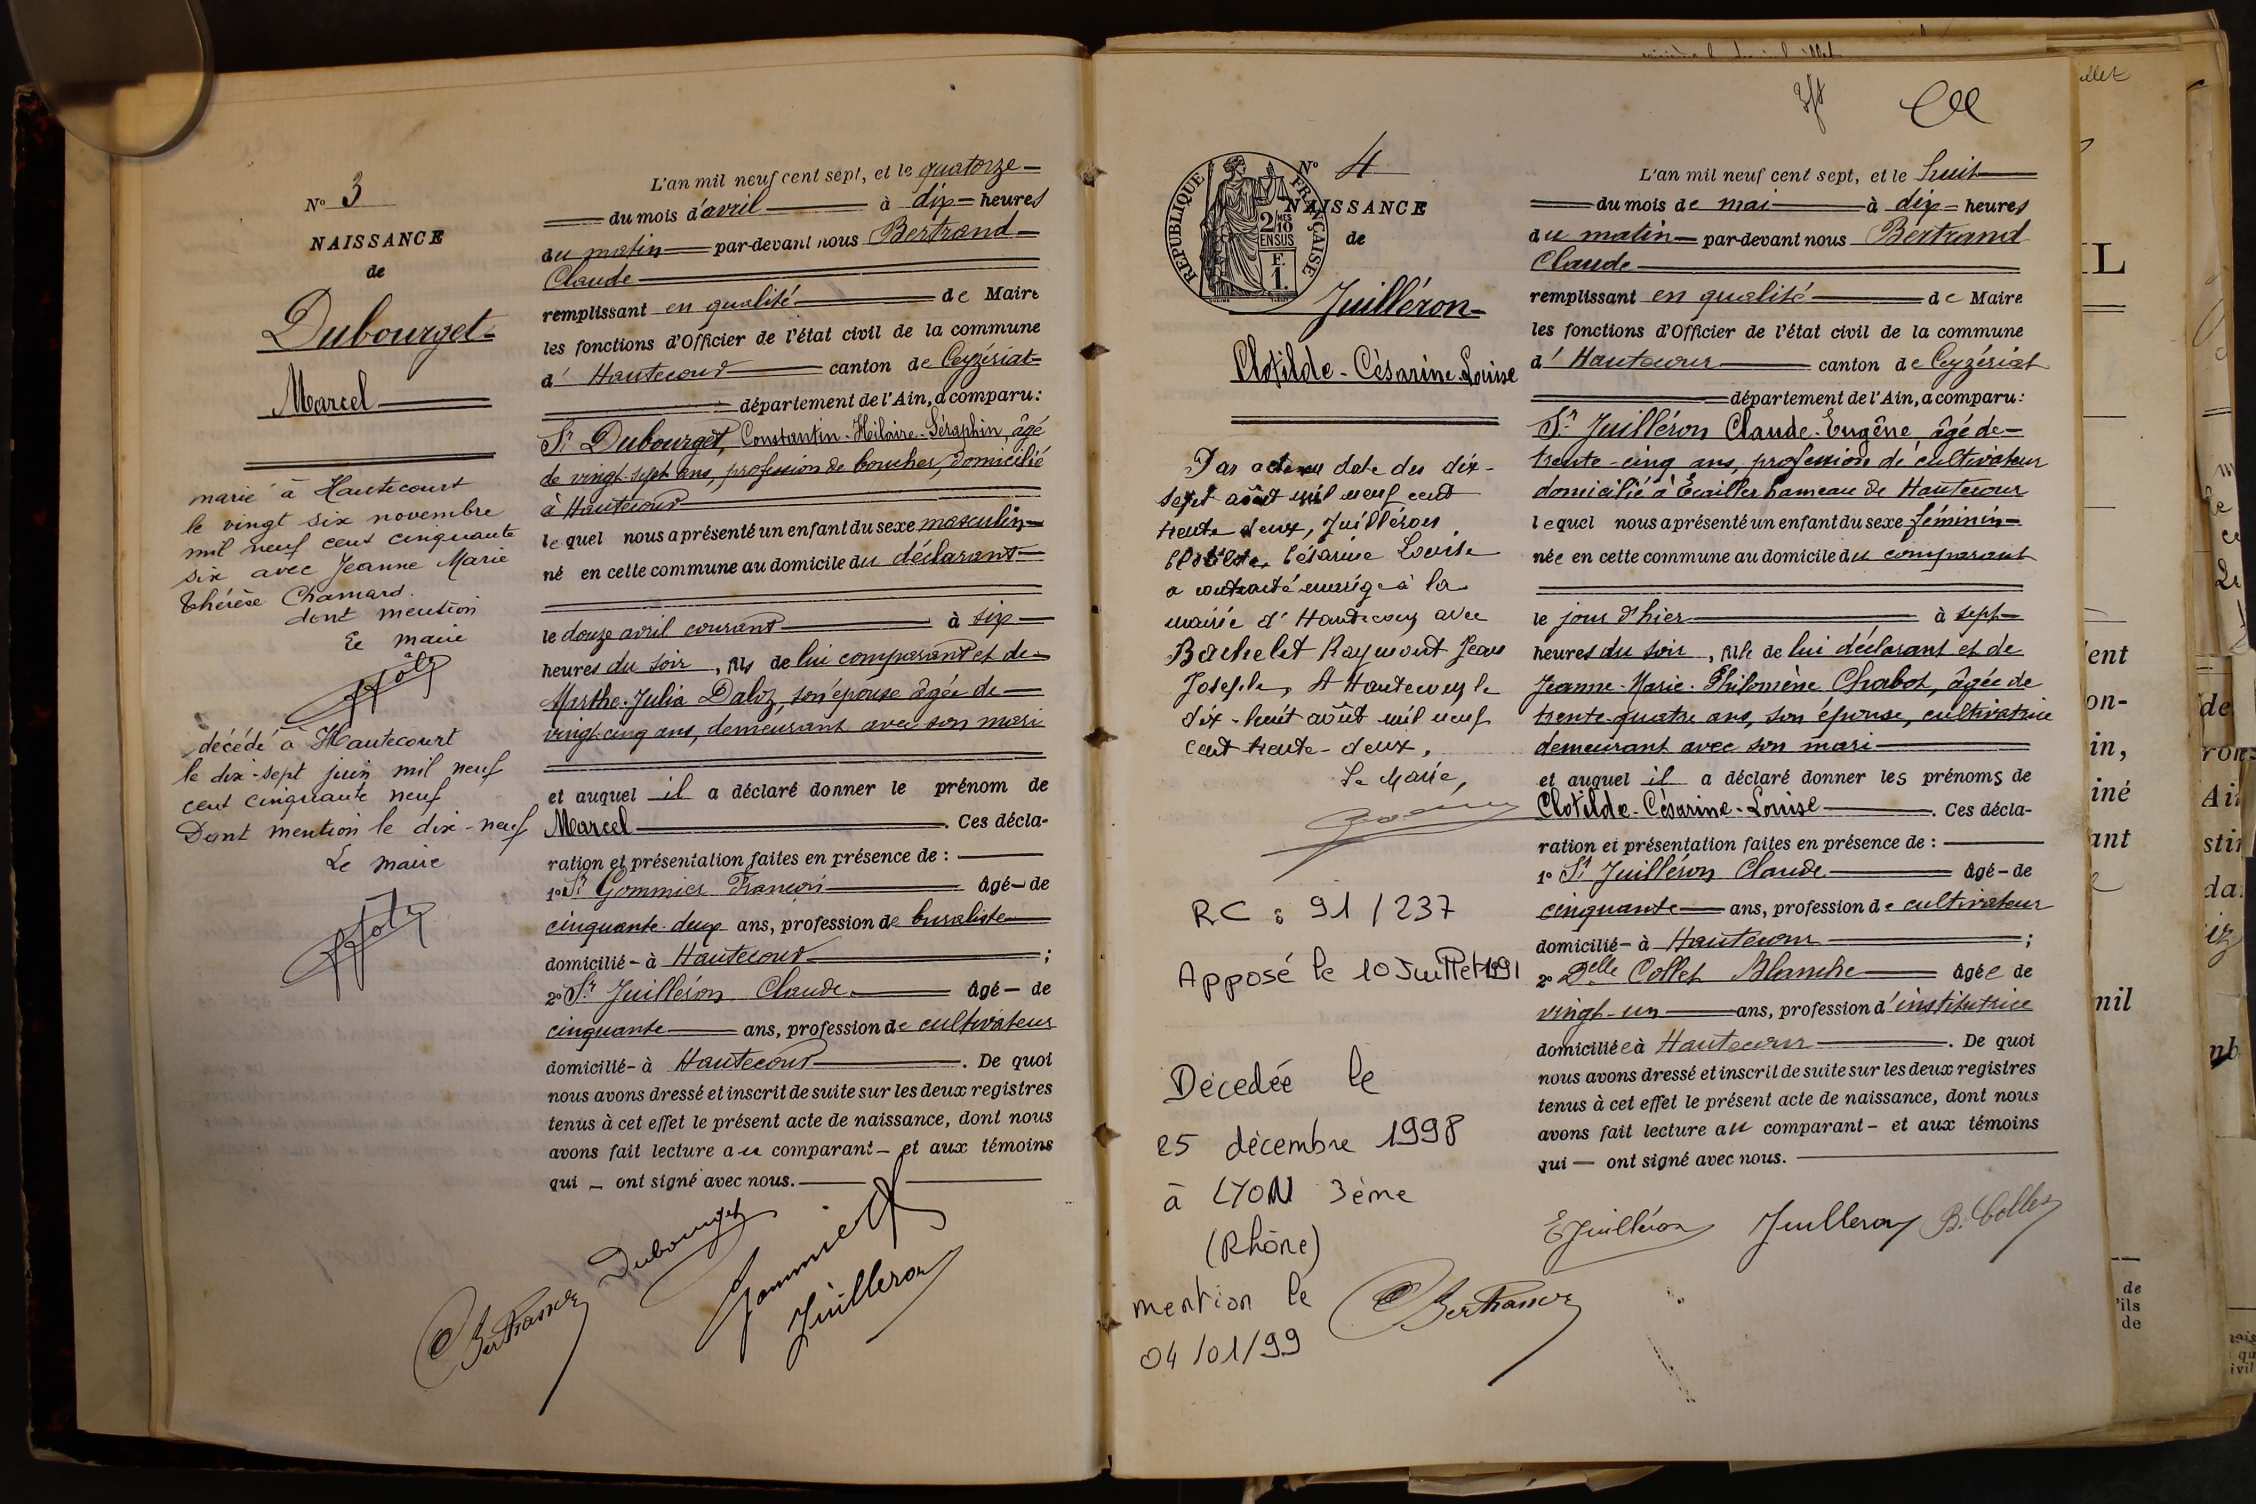 N° 3
NAISSANCE
de
Dubourget
Marcel
marié à Hautecourt
le vingt six novembre
mil neuf cent cinquante
six avec Jeanne Marie
Thérèse Chamard.
dont mention
Le maire
décédé à Hautecourt
le dix-sept juin mil neuf
cent cinquante neuf
Dont mention le dix-neuf
Le maire
L'an mil neuf cent sept, et le quatorze
du mois d'avril à dix heures
du matin par-devant nous Bertrand
Claude
remplissant en qualité de Maire
les fonctions d'Officier de l'état civil de la commune
d' Hautecour canton de Ceyzériat
département de l'Ain, a comparu :
Sr Dubourget, Constantin-Hilaire-Séraphin, âgé
de vingt-sept ans, profession de boucher, domicilié
à Hautecour
lequel nous a présenté un enfant du sexe masculin
né en cette commune au domicile du déclarant
le douze avril courant à six
heures du soir, fils de lui comparant et de
Marthe-Julia Daloz, son épouse âgée de
vingt-cinq ans, demeurant avec son mari
et auquel il a déclaré donner le prénom de
Marcel. Ces décla-
ration et présentation faites en présence de :
1° Sr Gommier François âgé de
cinquante-deux ans, profession de buraliste
domicilié à Hautecour ;
2° Sr Juilléron Claude âgé de
cinquante ans, profession de cultivateur
domicilié à Hautecour. De quoi
nous avons dressé et inscrit de suite sur les deux registres
tenus à cet effet le présent acte de naissance, dont nous
avons fait lecture au comparant et aux témoins
qui ont signé avec nous.
Dubourget
Gommier
CBertrand
Juilleron
N° 4
RÉPUBLIQUE FRANÇAISE
2/10 MES
EN SUS
F.
1.
NAISSANCE
de
Juilléron
Clotilde-Césarine-Louise
Par acte en date du dix-
sept août mil neuf cent
trente deux, Juilléron
Clotilde Césarine Louise
a contracté mariage à la
mairie d'Hautecour avec
Bachelet Raymond Jean
Joseph, A Hautecour le
dix-huit août mil neuf
cent trente-deux,
Le Maire,
RC : 91 / 237
Apposé le 10 Juillet 1991
Décédée le
25 décembre 1998
à LYON 3ème
(Rhône)
mention le
04/01/99
L'an mil neuf cent sept, et le huit
du mois de mai à dix heures
du matin par-devant nous Bertrand
Claude
remplissant en qualité de Maire
les fonctions d'Officier de l'état civil de la commune
d' Hautecour canton de Ceyzériat
département de l'Ain, a comparu :
Sr Juilléron Claude-Eugène, âgé de
trente-cinq ans, profession de cultivateur
domicilié à Ecailler hameau de Hautecour
lequel nous a présenté un enfant du sexe féminin
née en cette commune au domicile du comparant
le jour d'hier à sept
heures du soir, fille de lui déclarant et de
Jeanne-Marie-Philomène Chabot, âgée de
trente-quatre ans, son épouse, cultivatrice
demeurant avec son mari
et auquel il a déclaré donner les prénoms de
Clotilde-Césarine-Louise. Ces décla-
ration et présentation faites en présence de :
1° Sr Juilléron Claude âgé de
cinquante ans, profession de cultivateur
domicilié à Hautecour ;
2° Delle Collet Blanche âgée de
vingt-un ans, profession d'institutrice
domiciliée à Hautecour. De quoi
nous avons dressé et inscrit de suite sur les deux registres
tenus à cet effet le présent acte de naissance, dont nous
avons fait lecture au comparant et aux témoins
qui ont signé avec nous.
EJuilléron Juilleron B. Collet
CBertrand